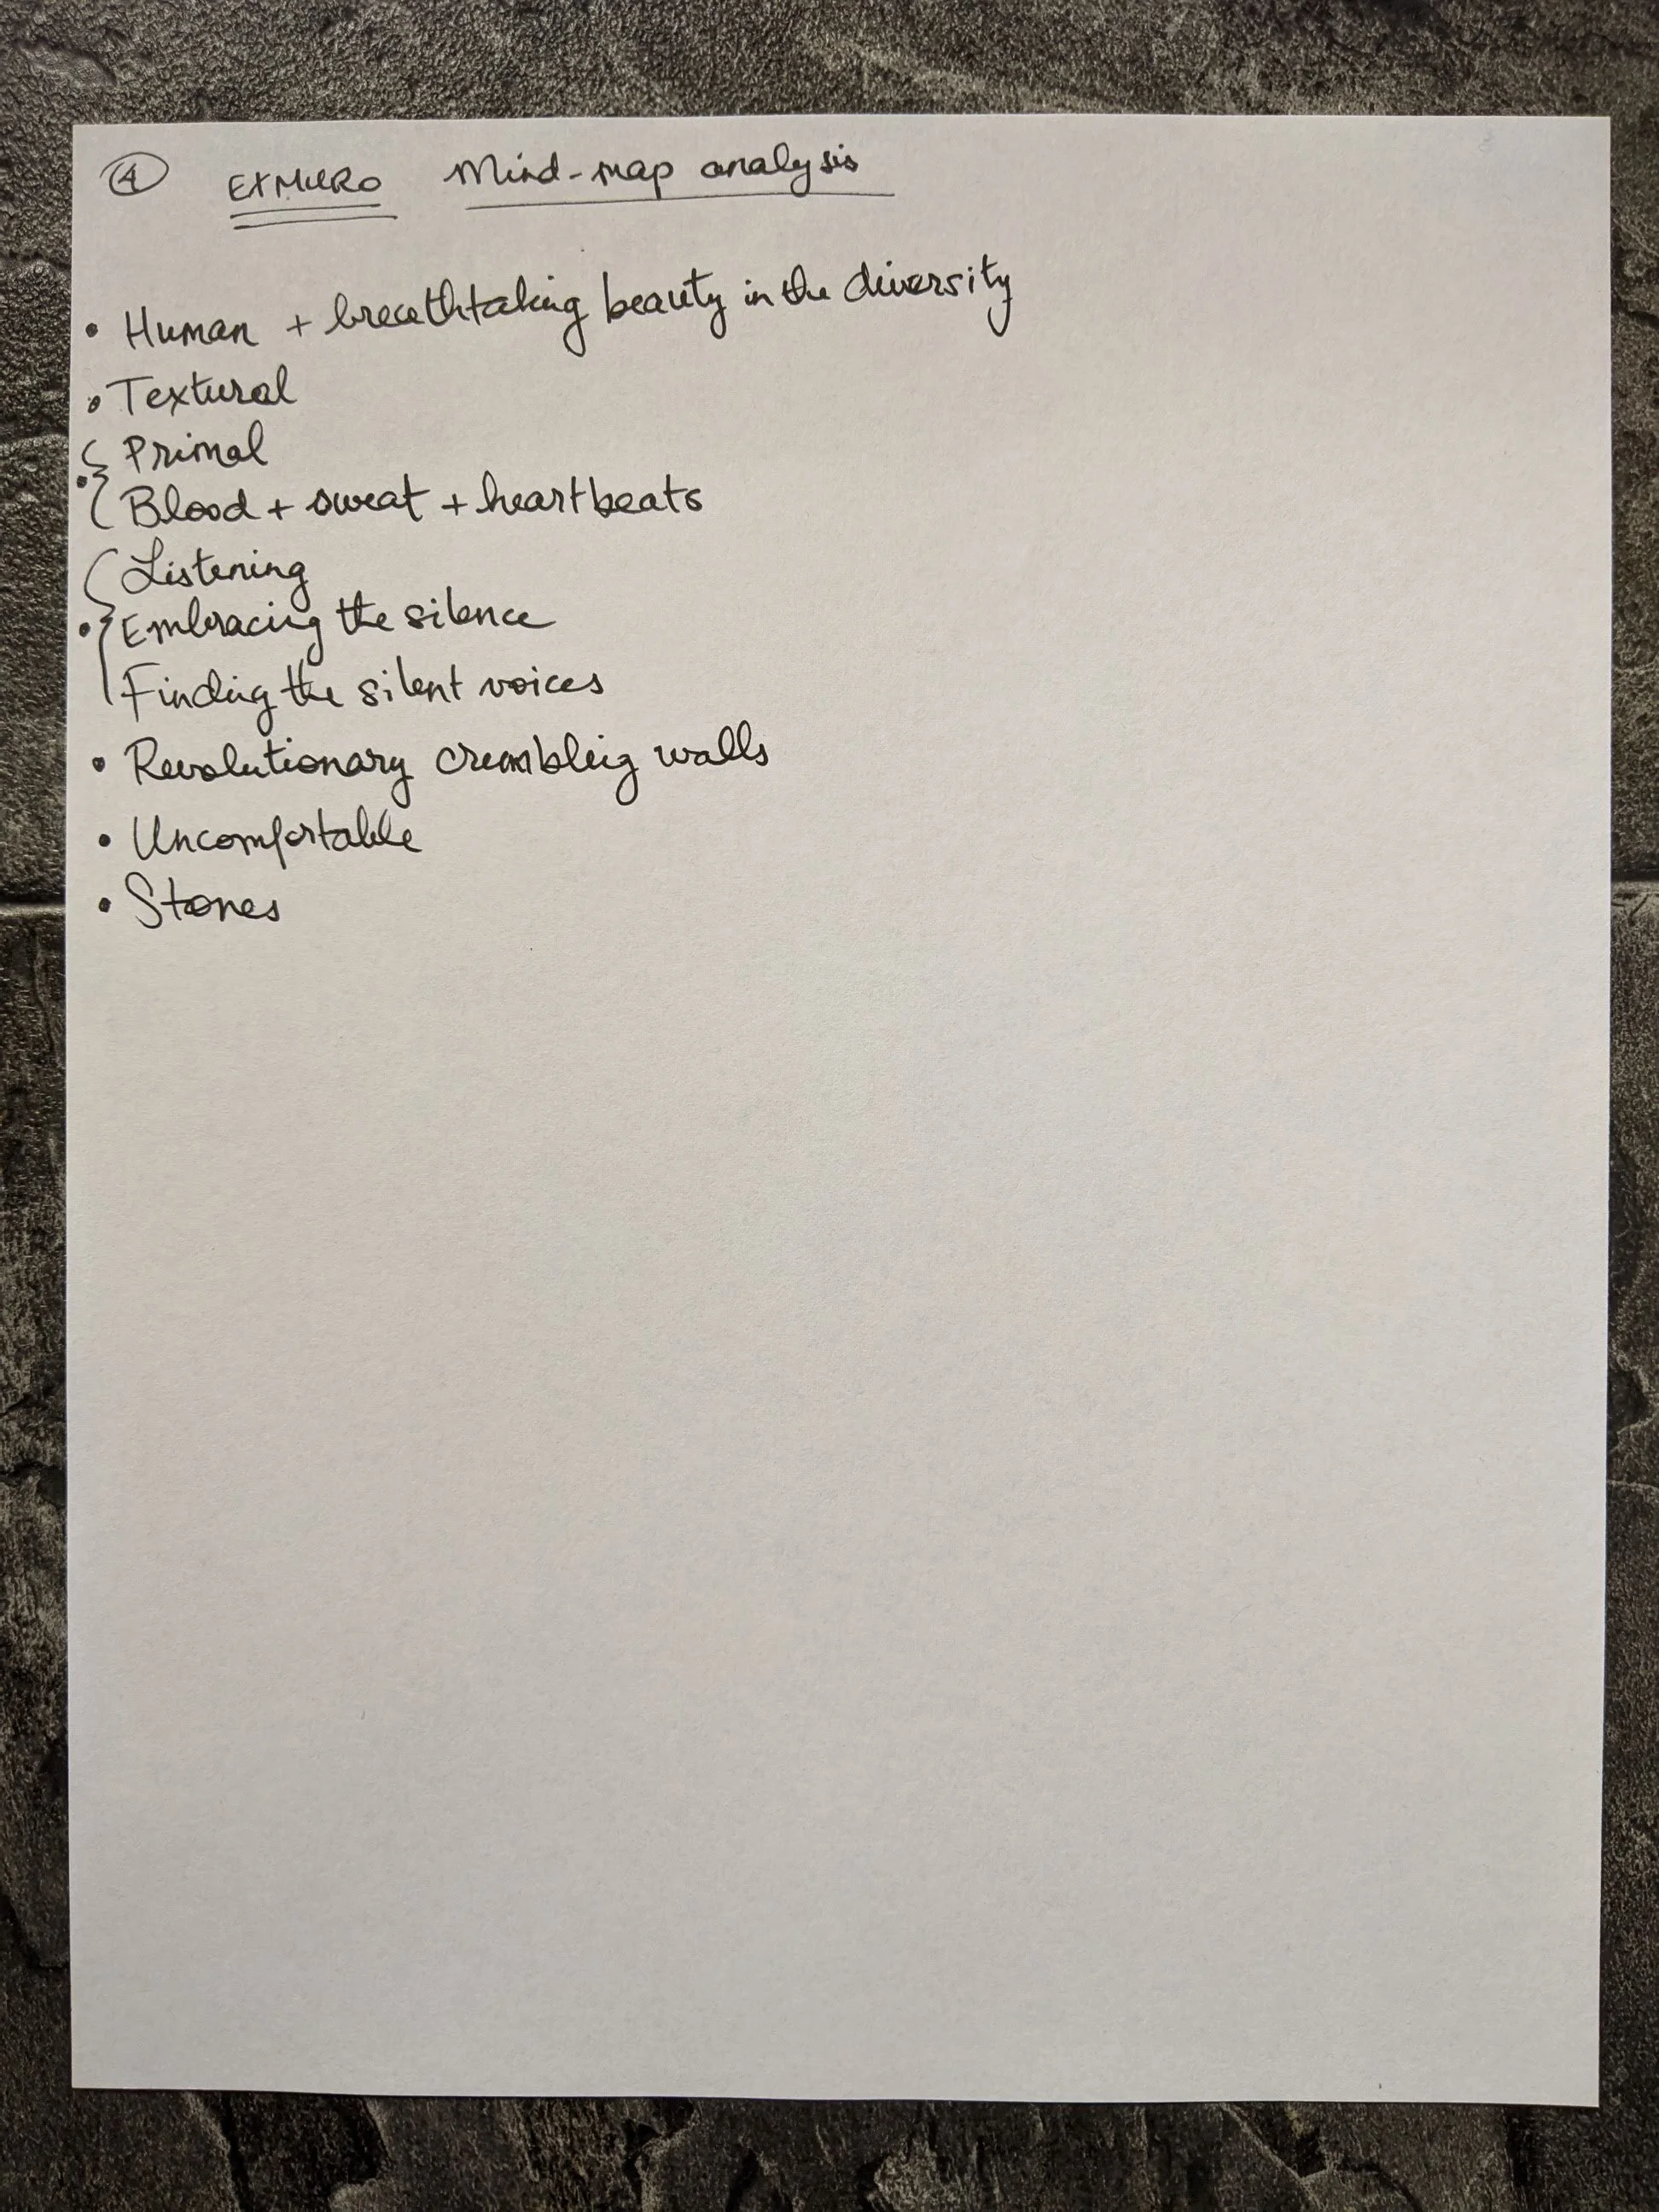 ④ EXMURO Mind-map analysis
• Human + breathtaking beauty in the diversity
• Textural
Primal
• Blood + sweat + heartbeats
Listening
• Embracing the silence
Finding the silent voices
• Revolutionary crumbling walls
• Uncomfortable
• Stones